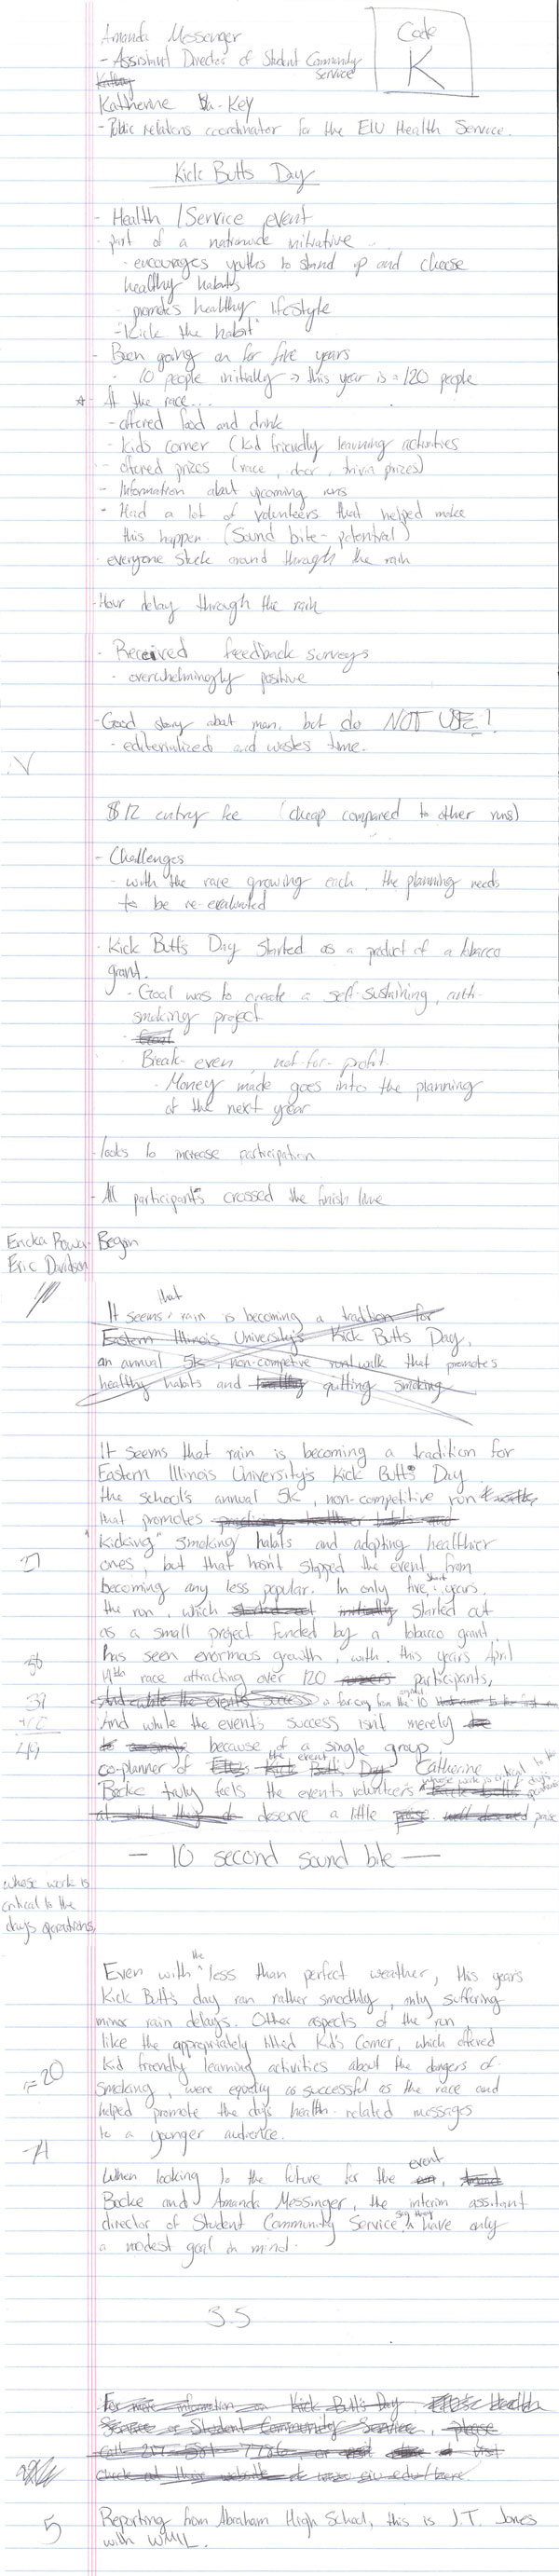 Amanda Messenger
Code
K
- Assistant Director of Student Community
Service
Katherine
- Key
- Public relations coordinator for the EIU Health Service.
Kick Butts Day
- Health / Service event
- part of a nationwide initiative
- encourages youths to stand up and choose
healthy habits
- promotes healthy lifestyle
- "Kick the habit"
- Been going on for five years
- 10 people initially → this year is ≈ 120 people
* - At the race...
- offered food and drink
- Kids corner (kid friendly learning activities
- offered prizes (race, door, trivia prizes)
- Information about upcoming runs
- Had a lot of volunteers that helped make
this happen. (Sound bite - potential)
- everyone stuck around through the rain
- Hour delay through the rain
- Received feedback surveys
- overwhelmingly positive
- Good story about man, but do NOT USE!
- editorialized and wastes time.
$12 entry fee (cheap compared to other runs)
- Challenges
- with the race growing each, the planning needs
to be re-evaluated
- Kick Butts Day started as a product of a tobacco
grant.
- Goal was to create a self-sustaining, anti-
smoking project
- Goal
Break-even, not-for-profit
- Money made goes into the planning
of the next year
- looks to increase participation
- All participants crossed the finish line
Began
Eric Davidson
It seems that rain is becoming a tradition for
Eastern Illinois University's Kick Butts Day,
an annual 5k, non-competive run/walk that promotes
healthy habits and quitting smoking
It seems that rain is becoming a tradition for
Eastern Illinois University's Kick Butts Day
the school's annual 5k, non-competitive run
that promotes
"Kicking" smoking habits and adopting healthier
27
ones, but that hasn't stopped the event from
becoming any less popular. In only five short years,
the run, which started out initially started out
as a small project funded by a tobacco grant
has seen enormous growth, with this years April
14th race attracting over 120 participants,
And while the events success a far cry from the original 10
And while the event's success isn't merely
49
because of a single group,
co-planner of the event Catherine
Bocke truly feels the events volunteers
deserve a little praise
— 10 second sound bite —
whose work is
critical to the
day's operations,
Even with the less than perfect weather, this year's
Kick Butts day ran rather smoothly, only suffering
minor rain delays. Other aspects of the run,
like the appropriately titled Kid's Corner, which offered
kid friendly learning activities about the dangers of
=20
smoking, were equally as successful as the race and
helped promote the day's health-related messages
to a younger audience.
When looking to the future for the event
Bocke and Amanda Messinger, the interim assitant
director of Student Community Service say they have only
a modest goal in mind.
35
For more information on Kick Butt's Day, Health
Service or Student Community Service, please
call 217-581-7786, or visit
check out their website
5
Reporting from Abraham High School, this is J.T. Jones
with WMIL.